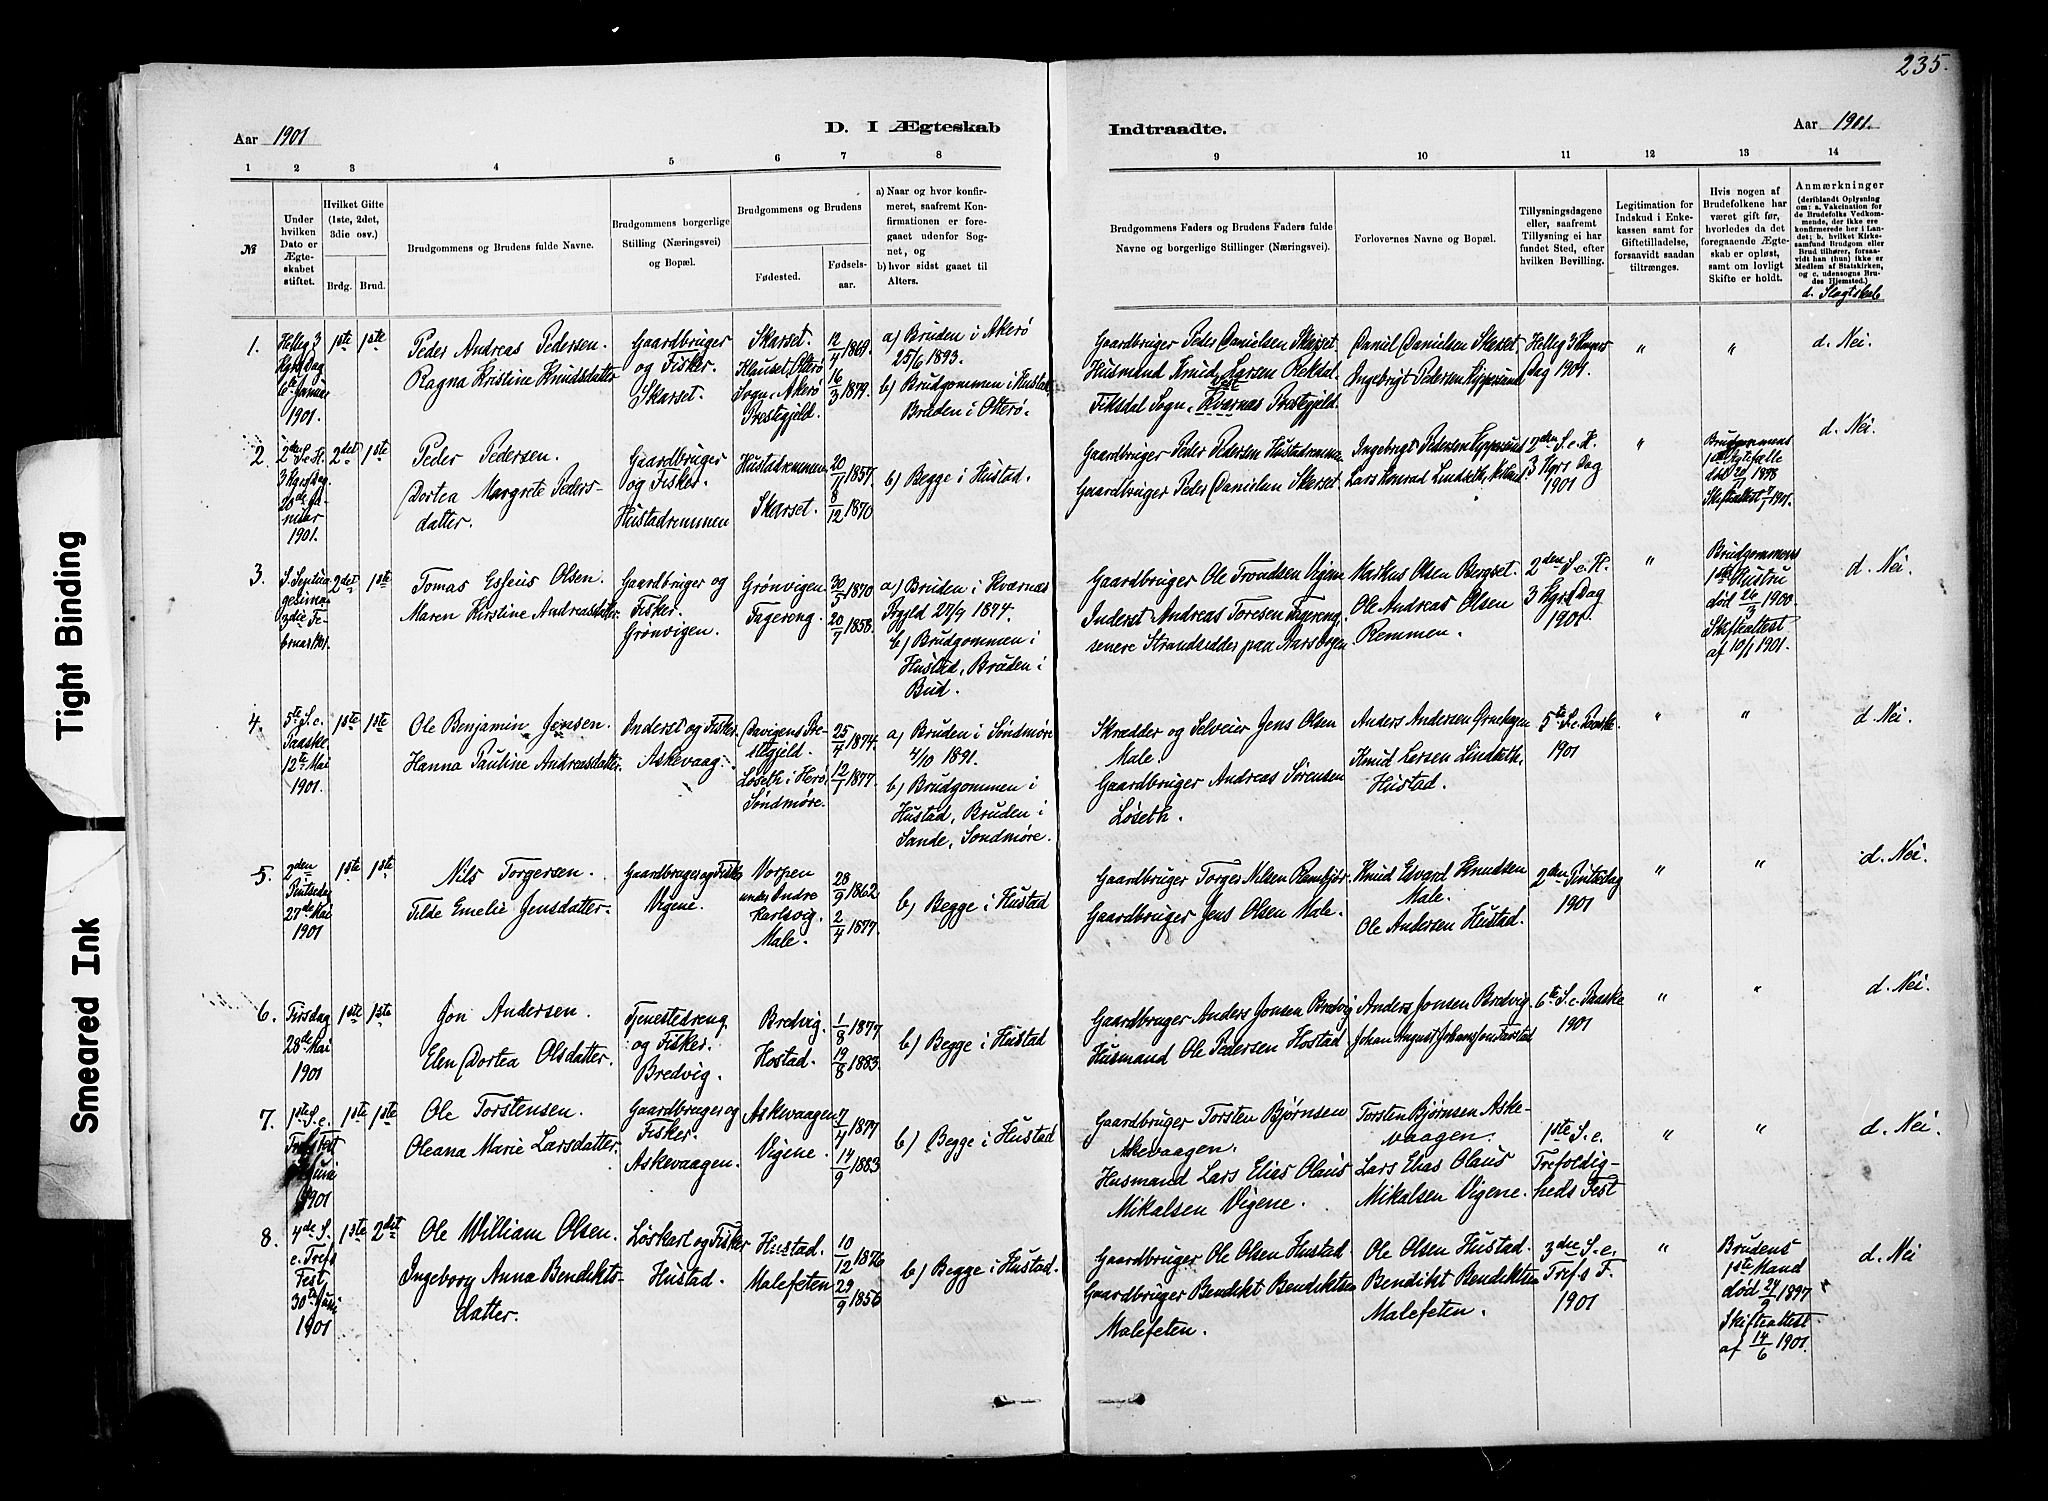 Tight Binding
Smeared Ink
235.
Aar 1901
D. I Ægteskab
Indtraadte.
Aar 1901.
1 2 3 4 5 6 7 8
9 10 11 12 13 14
№
Under hvilken Dato er Ægteskabet stiftet.
Hvilket Gifte (1ste, 2det, 3die osv.)
Brdg. Brud.
Brudgommens og Brudens fulde Navne.
Brudgommens borgerlige Stilling (Næringsvei) og Bopæl.
Brudgommens og Brudens
Fødested.
Fødselsaar.
a) Naar og hvor konfirmeret, saafremt Konfirmationen er foregaaet udenfor Sognet, og
b) hvor sidst gaaet til Alters.
Brudgommens Faders og Brudens Faders fulde Navne og borgerlige Stillinger (Næringsvei).
Forlovernes Navne og Bopæl.
Tillysningsdagene eller, saafremt Tillysning ei har fundet Sted, efter hvilken Bevilling.
Legitimation for Indskud i Enkekassen samt for Giftetilladelse, forsaavidt saadan tiltrænges.
Hvis nogen af Brudefolkene har været gift før, hvorledes da det foregaaende Ægteskab er opløst, samt om lovligt Skifte er holdt.
Anmærkninger
(deriblandt Oplysning om: a. Vakcination for de Brudefolks Vedkommende, der ikke ere konfirmerede her i Landet; b. hvilket Kirkesamfund Brudgom eller Brud tilhører, forsaavidt han (hun) ikke er Medlem af Statskirken, og c. udensogns Brudes Hjemsted.)
d. Slægtskab
1.
Helleg 3
Kgrs Dag
6te Januar
1901.
1ste 1ste
Peder Andreas Pedersen.
Ragna Kristine Knudsdatter
Gaardbruger
og Fisker.
Skarset.
Skarset.
Klauset, Otterø
Sogn, Akerø
Prestegjeld.
12/4 1869.
16/3 1879.
a) Bruden i Akerø
25/6 1893.
b) Brudgommen i Hustad,
Bruden i Otterø.
Gaardbruger Peder Danielsen Skarset.
Husmand Knud Larsen Rekdal
Fiksdal Sogn, Prestegjeld.
Daniel Danielsen Skarset.
Ingebrigt Pedersen
Helleg 3 Kongers
Dag 1901.
" "
d. Nei.
2.
2den S. e. H.
3 Kgrs Dag
20de Januar
1901.
2det 1ste
Peder Pedersen.
Dortea Margrete Pedersdatter.
Gaardbruger
og Fisker.
Hustadremmen
Hustadremmen
Skarset.
20/7 1857.
8/12 1870
b) Begge i Hustad.
Gaardbruger Peder Pedersen Hustadremmen
Gaardbruger Peder Danielsen Skarset.
Ingebrigt Pedersen
Lars Konrad
2den S. e. H.
3 Kgrs Dag
1901
"
Brudgommens
1ste Ægtefælle
død 1898
Skifteattest 1901.
d. Nei.
3.
S. Septuagesima
3die Februar 1901.
2det 1ste
Tomas Esseus Olsen.
Maren Kirstine Andreasdatter.
Gaardbruger og
Fisker.
Grønvigen.
Grønvigen
Fagereng.
30/3 1870
20/7 1858.
a) Bruden i Kværnæs
Prgjld 27/9 1874.
b) Brudgommen i
Hustad, Bruden i
Bud.
Gaardbruger Ole Trondsen Vigen
Inderst Andreas Toresen Fagereng,
senere Strandsidder paa
Markus Olsen Bergset.
Ole Andreas Olsen
Remmen.
2den S. e. H.
3 Kgrs Dag
1901
"
Brudgommens
1ste Hustru
død 26/3 1900.
Skifteattest
af 10/1 1901.
d. Nei.
4.
5te S. e.
Paaske.
12te Mai
1901.
1ste 1ste
Ole Benjamin Jensen.
Hanna Pauline Andreasdatter.
Inderst og Fisker.
Askevaag.
Davigens Prestegjeld.
Løseth i Herø,
Søndmøre.
25/4 1874.
12/1 1877.
a) Bruden i Søndmøre
4/10 1891.
b) Brudgommen i
Hustad, Bruden i
Sande, Søndmøre.
Skrædder og Selveier Jens Olsen
Male.
Gaardbruger Andreas Sørensen
Løseth.
Anders Andersen
Knud Larsen Lindseth,
Hustad.
5te S. e. Paaske
1901
" "
d. Nei.
5.
2den
Pintsedag
27de Mai
1901
1ste 1ste
Nils Torgersen.
Tilde Emelie Jensdatter.
Gaardbruger og Fisker
Vigene.
Vorpen
under Indre
Karlsvig.
Male.
28/9 1862
2/4 1877.
b) Begge i Hustad
Gaardbruger Torger Nilsen
Gaardbruger Jens Olsen Male.
Knud Edvard Knudsen
Male.
Ole Andersen Hustad.
2den Pintsedag
1901
" "
d. Nei.
6.
Tirsdag
28de Mai
1901
1ste 1ste
Jon Andersen.
Elen Dortea Olsdatter.
Tjenestedreng
og Fisker.
Bredvig.
Bredvig.
Hostad.
1/8 1877
19/8 1883.
b) Begge i Hustad
Gaardbruger Anders Jonsen Bredvig
Husmand Ole Pedersen Hostad
Anders Jonsen Bredvig.
Johan August Johansson Farstad
6te S. e. Paaske
1901
" "
d. Nei.
7.
1ste S. e.
Trefs Fest
Juni
1901
1ste 1ste
Ole Torstensen.
Oleana Marie Larsdatter.
Gaardbruger og
Fisker.
Askevaagen.
Askevaagen
Vigene.
7/4 1877
14/9 1883
b) Begge i Hustad
Gaardbruger Torsten Bjørnsen
Askevaagen.
Husmand Lars Elias Olaus
Mikalsen Vigene.
Torsten Bjørnsen Askevaagen.
Lars Elias Olaus
Mikalsen Vigene.
1ste S. e.
Trefoldigheds Fest
" "
d. Nei.
8.
4de S.
e. Trefs
Fest
30te Juni
1901
1ste 2det
Ole William Olsen.
Ingeborg Anna Bendiktsdatter.
Løskarl og Fisker
Hustad.
Hustad.
Malefeten
10/12 1876
29/9 1856
b) Begge i Hustad.
Gaardbruger Ole Olsen Hustad.
Gaardbruger Bendikt Bendiktsen
Malefeten.
Ole Olsen Hustad.
Bendikt Bendiktsen
Malefeten.
3die S. e.
Trefs F.
1901
"
Brudens
1ste Mand
død 24/9 1897
Skifteattest
af 14/6 1901.
d. Nei